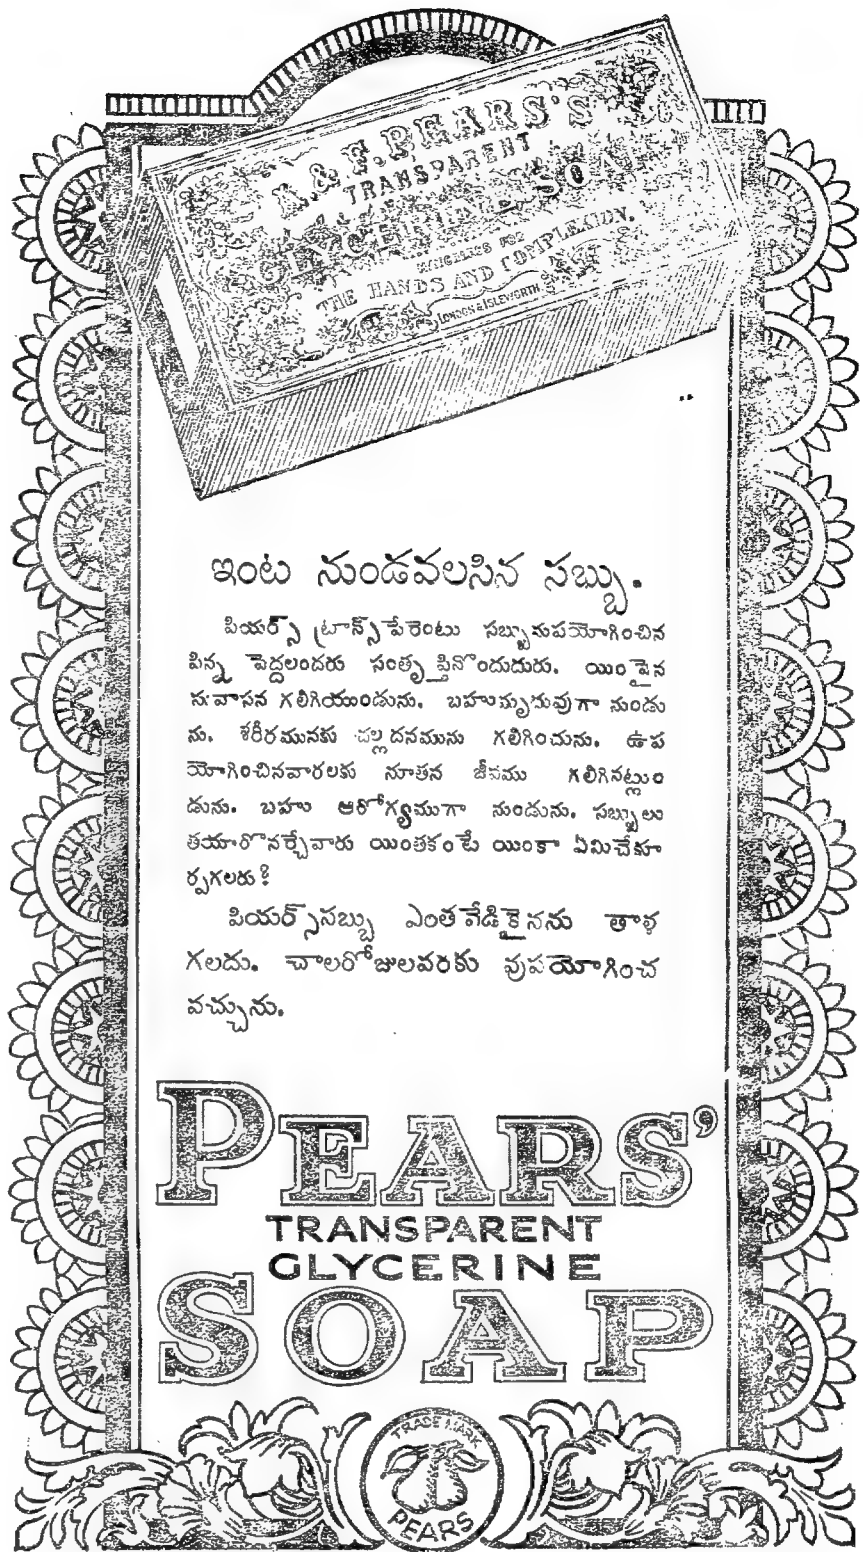 A. & F. PEARS'S
TRANSPARENT
GLYCERINE SOAP
THE HANDS AND COMPLEXION.
LONDON & ISLEWORTH
ఇంట నుండవలసిన సబ్బు.
పియర్స్ ట్రాన్స్‌పేరెంటు సబ్బునుపయోగించిన
పిన్న పెద్దలందరు సంతృప్తినొందుదురు. యింపైన
సువాసన గలిగియుండును. బహుమృదువుగా నుండు
ను. శరీరమునకు చల్లదనమును గలిగించును. ఉప
యోగించినవారలకు నూతన జీవము గలిగినట్లుం
డును. బహు ఆరోగ్యముగా నుండును. సబ్బులు
తయారొనర్చేవారు యింతకంటే యింకా ఏమిచేకూ
ర్పగలరు?
పియర్స్‌సబ్బు ఎంతవేడికైనను తాళ
గలదు. చాలరోజులవరకు వుపయోగించ
వచ్చును.
PEARS'
TRANSPARENT
GLYCERINE
SOAP
TRADE MARK
PEARS